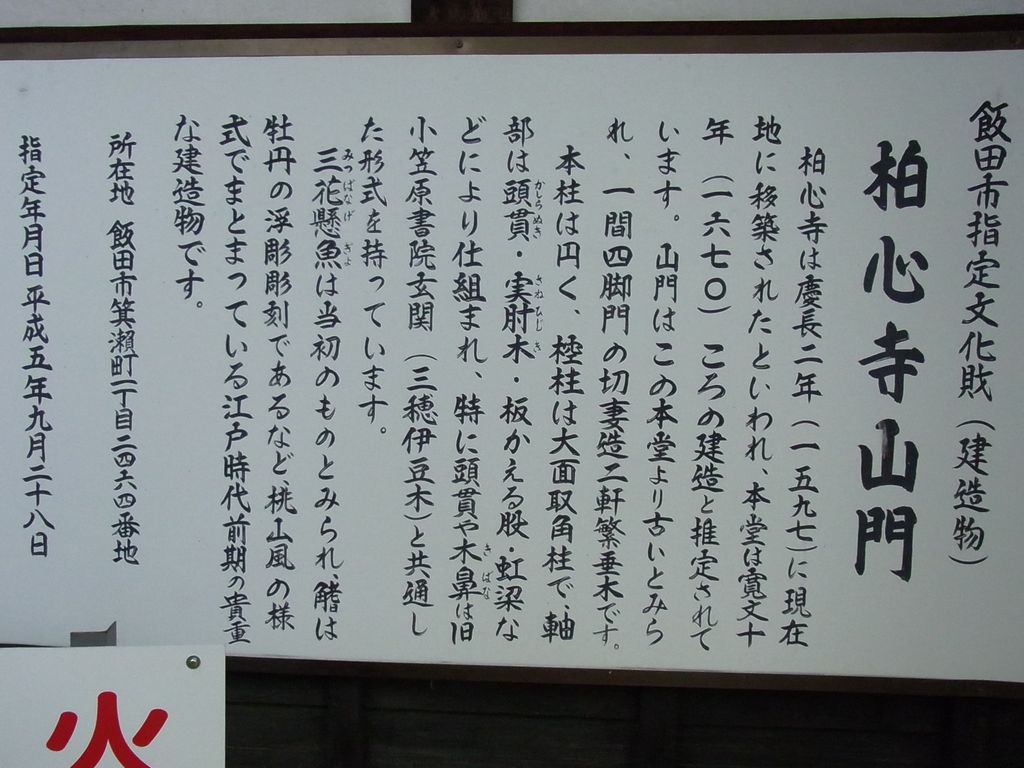 飯田市指定文化財（建造物）
柏心寺山門
柏心寺は慶長二年（一五九七）に現在
地に移築されたといわれ、本堂は寛文十
年（一六七〇）ころの建造と推定されて
います。山門はこの本堂より古いとみら
れ、一間四脚門の切妻造二軒繁垂木です。
本柱は円く、控柱は大面取角柱で、軸
部は頭貫・実肘木・板かえる股・虹梁な
どにより仕組まれ、特に頭貫や木鼻は旧
小笠原書院玄関（三穂伊豆木）と共通し
た形式を持っています。
三花懸魚は当初のものとみられ、鰭は
牡丹の浮彫彫刻であるなど、桃山風の様
式でまとまっている江戸時代前期の貴重
な建造物です。
所在地 飯田市箕瀬町一丁目二四六四番地
指定年月日 平成五年九月二十八日
火